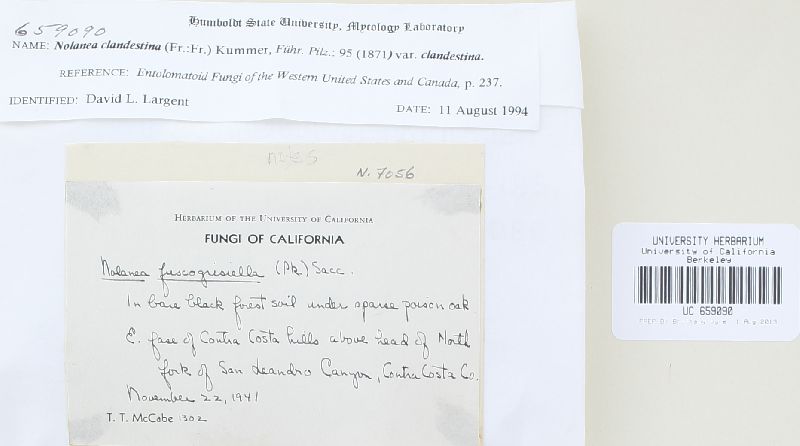 659090
Humboldt State University, Mycology Laboratory
NAME: Nolanea clandestina (Fr.:Fr.) Kummer, Führ. Pilz.: 95 (1871) var. clandestina.
REFERENCE: Entolomatoid Fungi of the Western United States and Canada, p. 237.
IDENTIFIED: David L. Largent
DATE: 11 August 1994
notes
N. 7056
HERBARIUM OF THE UNIVERSITY OF CALIFORNIA
FUNGI OF CALIFORNIA
Nolanea fuscogrisiella (Pk.) Sacc.
In bare black forest soil under sparse poison oak
E. face of Contra Costa hills above head of North
fork of San Leandro Canyon, Contra Costa Co.
November 22, 1941
T. T. McCabe 1302
UNIVERSITY HERBARIUM
University of California
Berkeley
UC 659090